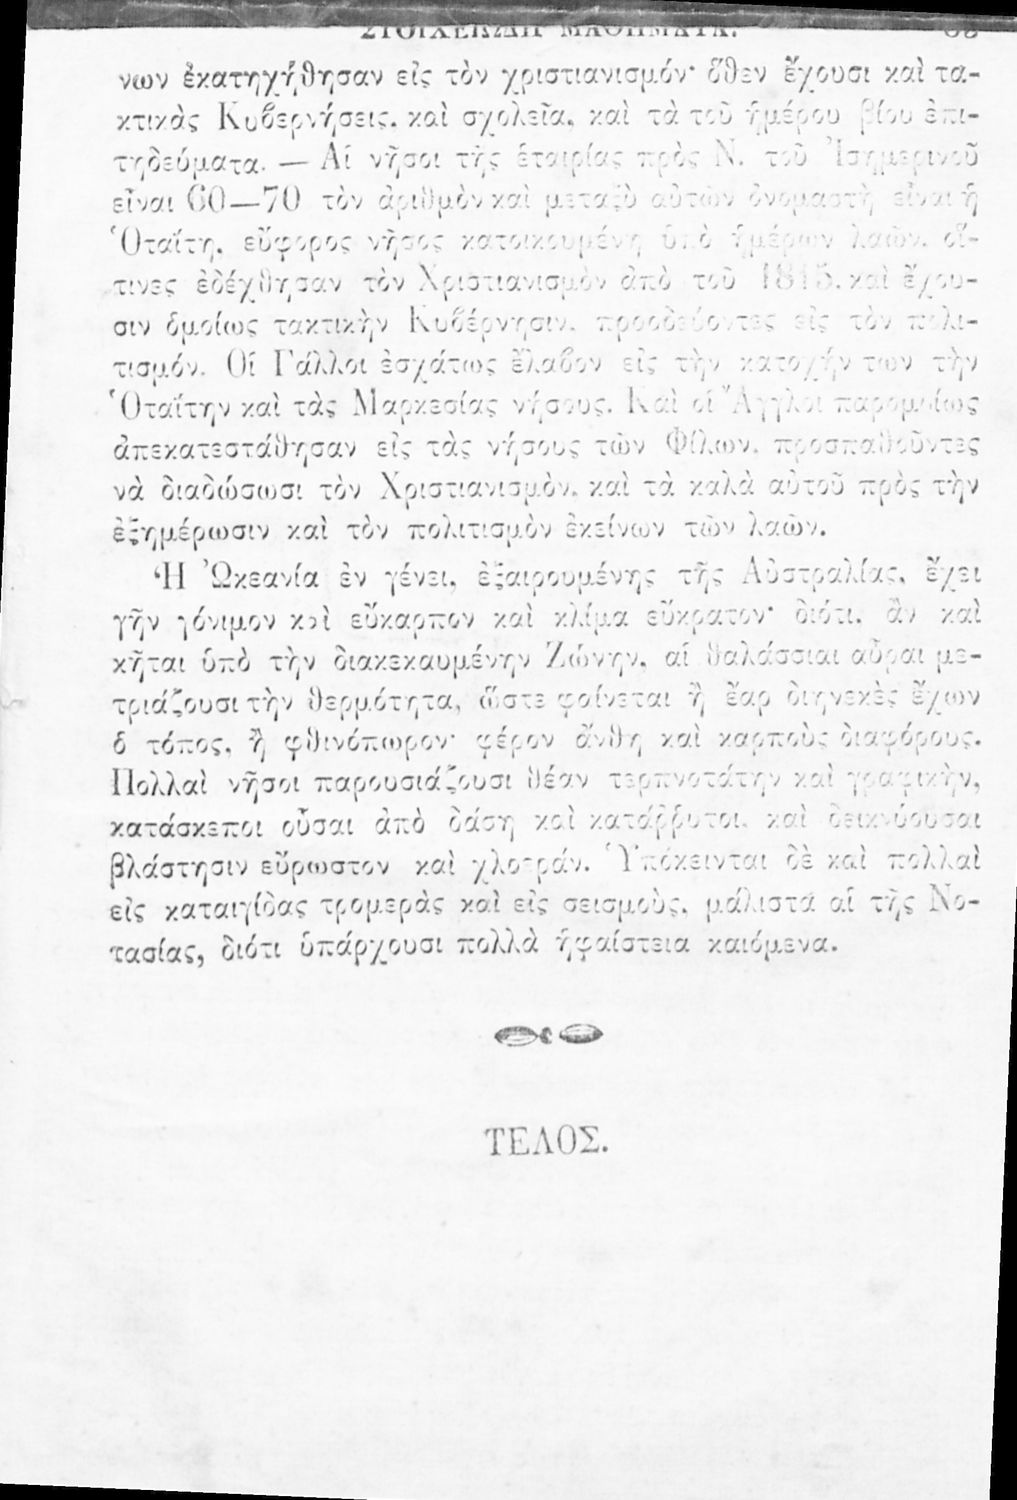 ΣΤΟΙΧΕΙΩΔΗ ΜΑΘΗΜΑΤΑ.
νων ἐκατηχήθησαν εἰς τὸν χριστιανισμόν· ὅθεν ἔχουσι καὶ τα-
κτικὰς Κυβερνήσεις, καὶ σχολεῖα, καὶ τὰ τοῦ ἡμέρου βίου ἐπι-
τηδεύματα. — Αἱ νῆσοι τῆς ἑταιρίας πρὸς Ν. τοῦ Ἰσημερινοῦ
εἶναι 60—70 τὸν ἀριθμὸν καὶ μεταξὺ αὐτῶν ὀνομαστὴ εἶναι ἡ
Ὁταΐτη, εὔφορος νῆσος κατοικουμένη ὑπὸ ἡμέρων λαῶν, οἵ-
τινες ἐδέχθησαν τὸν Χριστιανισμὸν ἀπὸ τοῦ 1815, καὶ ἔχου-
σιν ὁμοίως τακτικὴν Κυβέρνησιν, προοδεύοντες εἰς τὸν πολι-
τισμόν. Οἱ Γάλλοι ἐσχάτως ἔλαβον εἰς τὴν κατοχήν των τὴν
Ὁταΐτην καὶ τὰς Μαρκεσίας νήσους. Καὶ οἱ Ἄγγλοι παρομοίως
ἀπεκατεστάθησαν εἰς τὰς νήσους τῶν Φίλων, προσπαθοῦντες
νὰ διαδώσωσι τὸν Χριστιανισμὸν, καὶ τὰ καλὰ αὐτοῦ πρὸς τὴν
ἐξημέρωσιν καὶ τὸν πολιτισμὸν ἐκείνων τῶν λαῶν.
Ἡ Ὠκεανία ἐν γένει, ἐξαιρουμένης τῆς Αὐστραλίας, ἔχει
γῆν γόνιμον καὶ εὔκαρπον καὶ κλίμα εὔκρατον· διότι, ἂν καὶ
κῆται ὑπὸ τὴν διακεκαυμένην Ζώνην, αἱ θαλάσσιαι αὖραι με-
τριάζουσι τὴν θερμότητα, ὥστε φαίνεται ἢ ἔαρ διηνεκὲς ἔχων
ὁ τόπος, ἢ φθινόπωρον· φέρον ἄνθη καὶ καρποὺς διαφόρους.
Πολλαὶ νῆσοι παρουσιάζουσι θέαν τερπνοτάτην καὶ γραφικὴν,
κατάσκεποι οὖσαι ἀπὸ δάση καὶ κατάῤῥυτοι, καὶ δεικνύουσαι
βλάστησιν εὔρωστον καὶ χλοεράν. Ὑπόκεινται δὲ καὶ πολλαὶ
εἰς καταιγίδας τρομερὰς καὶ εἰς σεισμοὺς, μάλιστα αἱ τῆς Νο-
τασίας, διότι ὑπάρχουσι πολλὰ ἡφαίστεια καιόμενα.
ΤΕΛΟΣ.